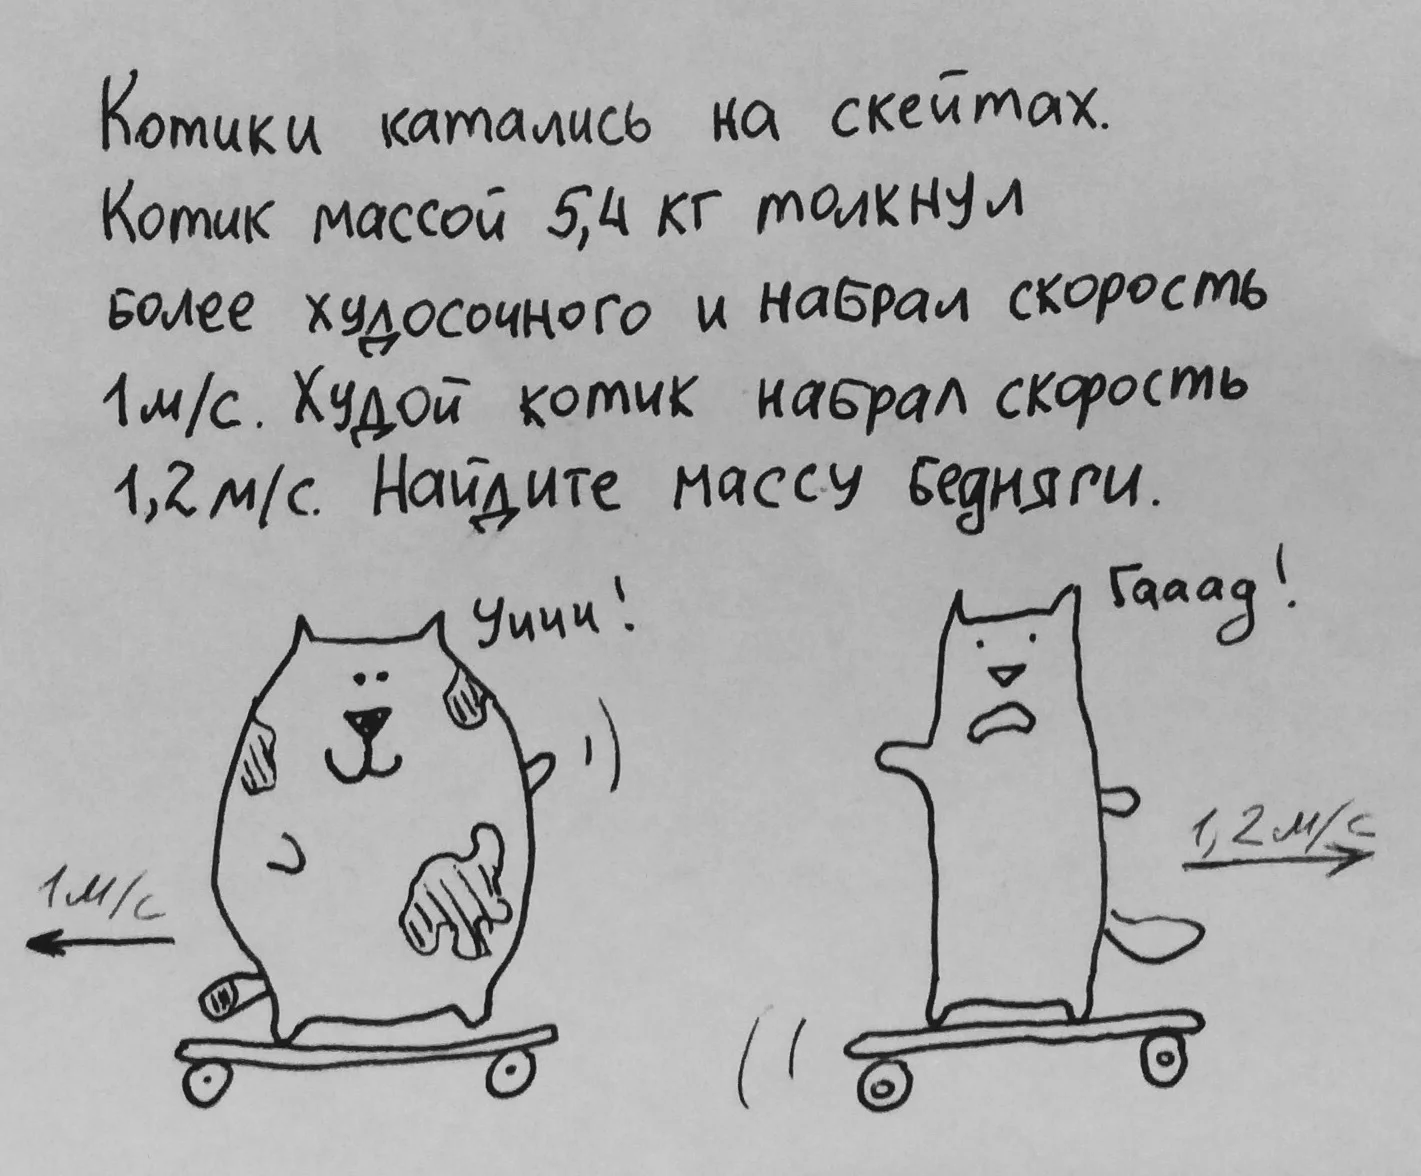 Котики катались на скейтах.
Котик массой 5,4 кг толкнул
более худосочного и набрал скорость
1м/с. Худой котик набрал скорость
1,2м/с. Найдите массу бедняги.
Уиии!
Гаааад!
1м/с
1,2м/с